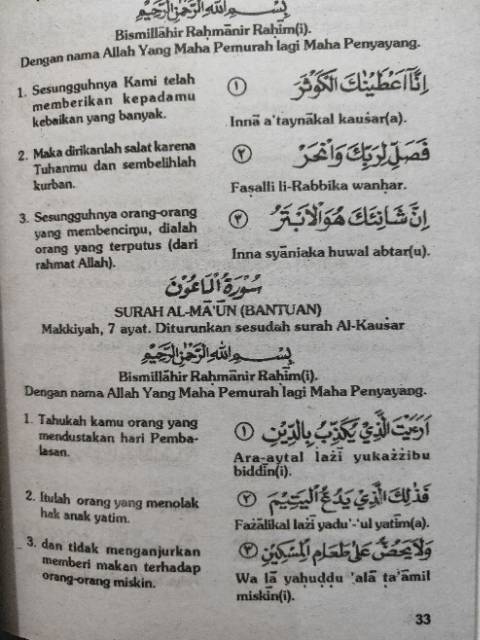 بِسْمِ اللهِ الرَّحْمٰنِ الرَّحِيْمِ
Bismillāhir Raḥmānir Raḥīm(i).
Dengan nama Allah Yang Maha Pemurah lagi Maha Penyayang.
1. Sesungguhnya Kami telah
memberikan kepadamu
kebaikan yang banyak.
١ اِنَّآ اَعْطَيْنٰكَ الْكَوْثَرَ
Innā a'taynākal kauśar(a).
2. Maka dirikanlah salat karena
Tuhanmu dan sembelihlah
kurban.
٢ فَصَلِّ لِرَبِّكَ وَانْحَرْ
Faṣalli li-Rabbika wanḥar.
3. Sesungguhnya orang-orang
yang membencimu, dialah
orang yang terputus (dari
rahmat Allah).
٣ اِنَّ شَانِئَكَ هُوَ الْاَبْتَرُ
Inna syāniaka huwal abtar(u).
سُوْرَةُ الْمَاعُوْنَ
SURAH AL-MĀ'ŪN (BANTUAN)
Makkiyah, 7 ayat. Diturunkan sesudah surah Al-Kauśar
بِسْمِ اللهِ الرَّحْمٰنِ الرَّحِيْمِ
Bismillāhir Raḥmānir Raḥīm(i).
Dengan nama Allah Yang Maha Pemurah lagi Maha Penyayang.
1. Tahukah kamu orang yang
mendustakan hari Pemba-
lasan.
١ اَرَءَيْتَ الَّذِيْ يُكَذِّبُ بِالدِّيْنِ
Ara-aytal lażī yukażżibu
biddīn(i).
2. Itulah orang yang menolak
hak anak yatim.
٢ فَذٰلِكَ الَّذِيْ يَدُعُّ الْيَتِيْمَ
Fażālikal lażī yadu'-'ul yatīm(a).
3. dan tidak menganjurkan
memberi makan terhadap
orang-orang miskin.
٣ وَلَا يَحُضُّ عَلٰى طَعَامِ الْمِسْكِيْنِ
Wa lā yaḥuḍḍu 'alā ṭa'āmil
miskīn(i).
33